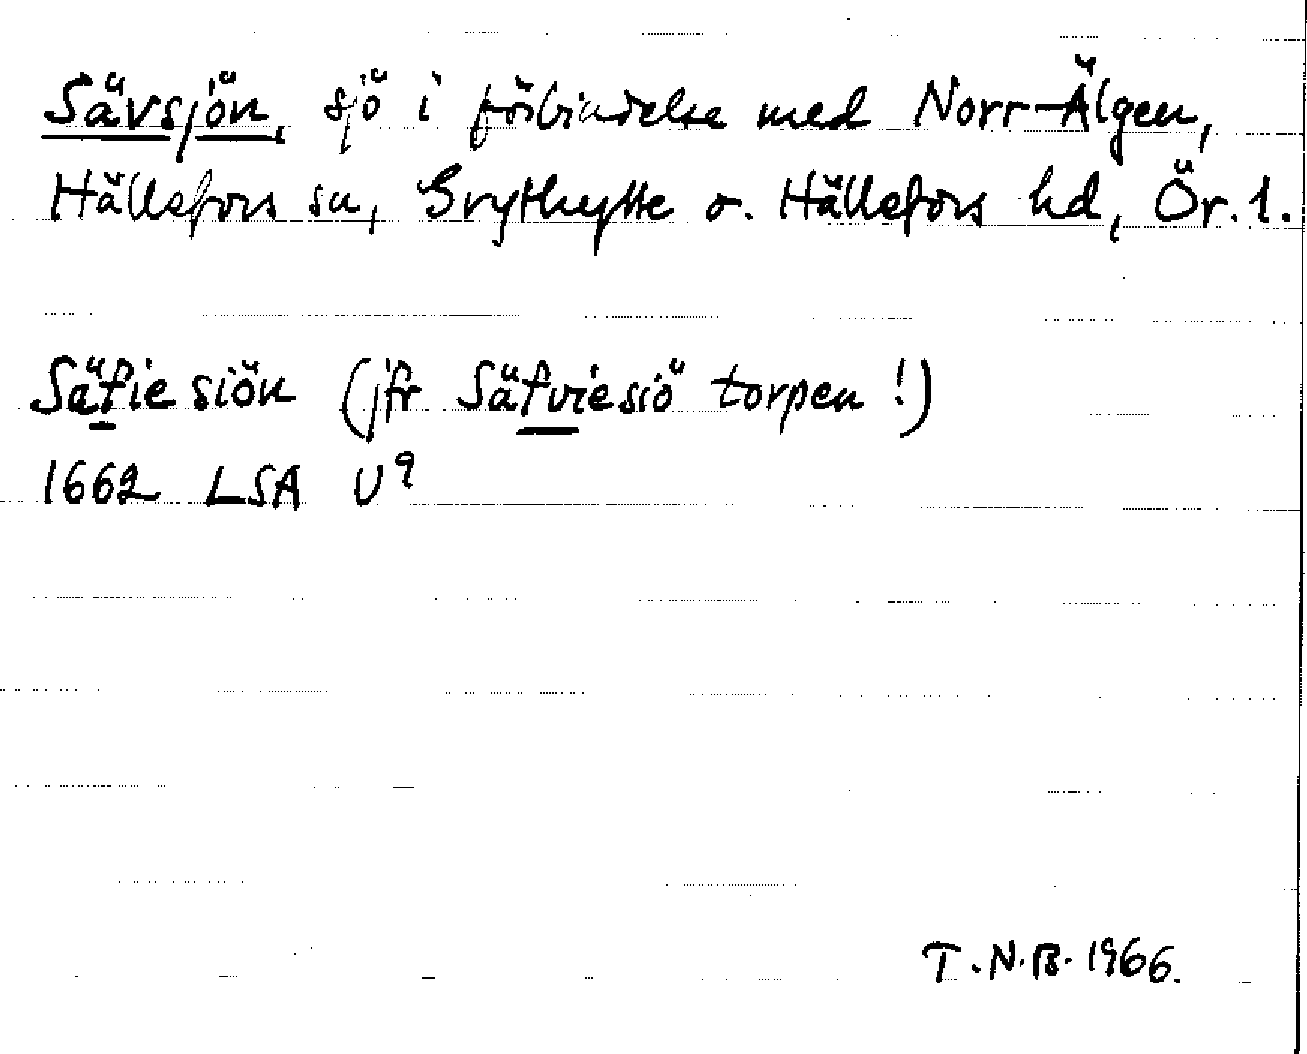 Sävsjön, sjö i förbindelse med Norr-Älgen,
Hällefors sn, Grythytte o. Hällefors hd, Ör. l.
Säfie siön (jfr Säfviesiö torpen !)
1662 LSA U9
T.N.B. 1966.